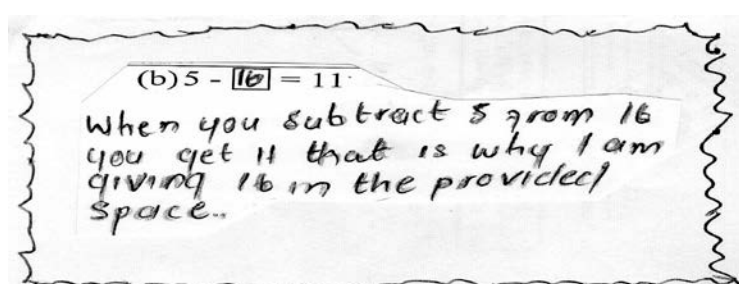 (b) 5 - 16 = 11
When you subtract 5 from 16
you get 11 that is why I am
giving 16 in the provided
space..